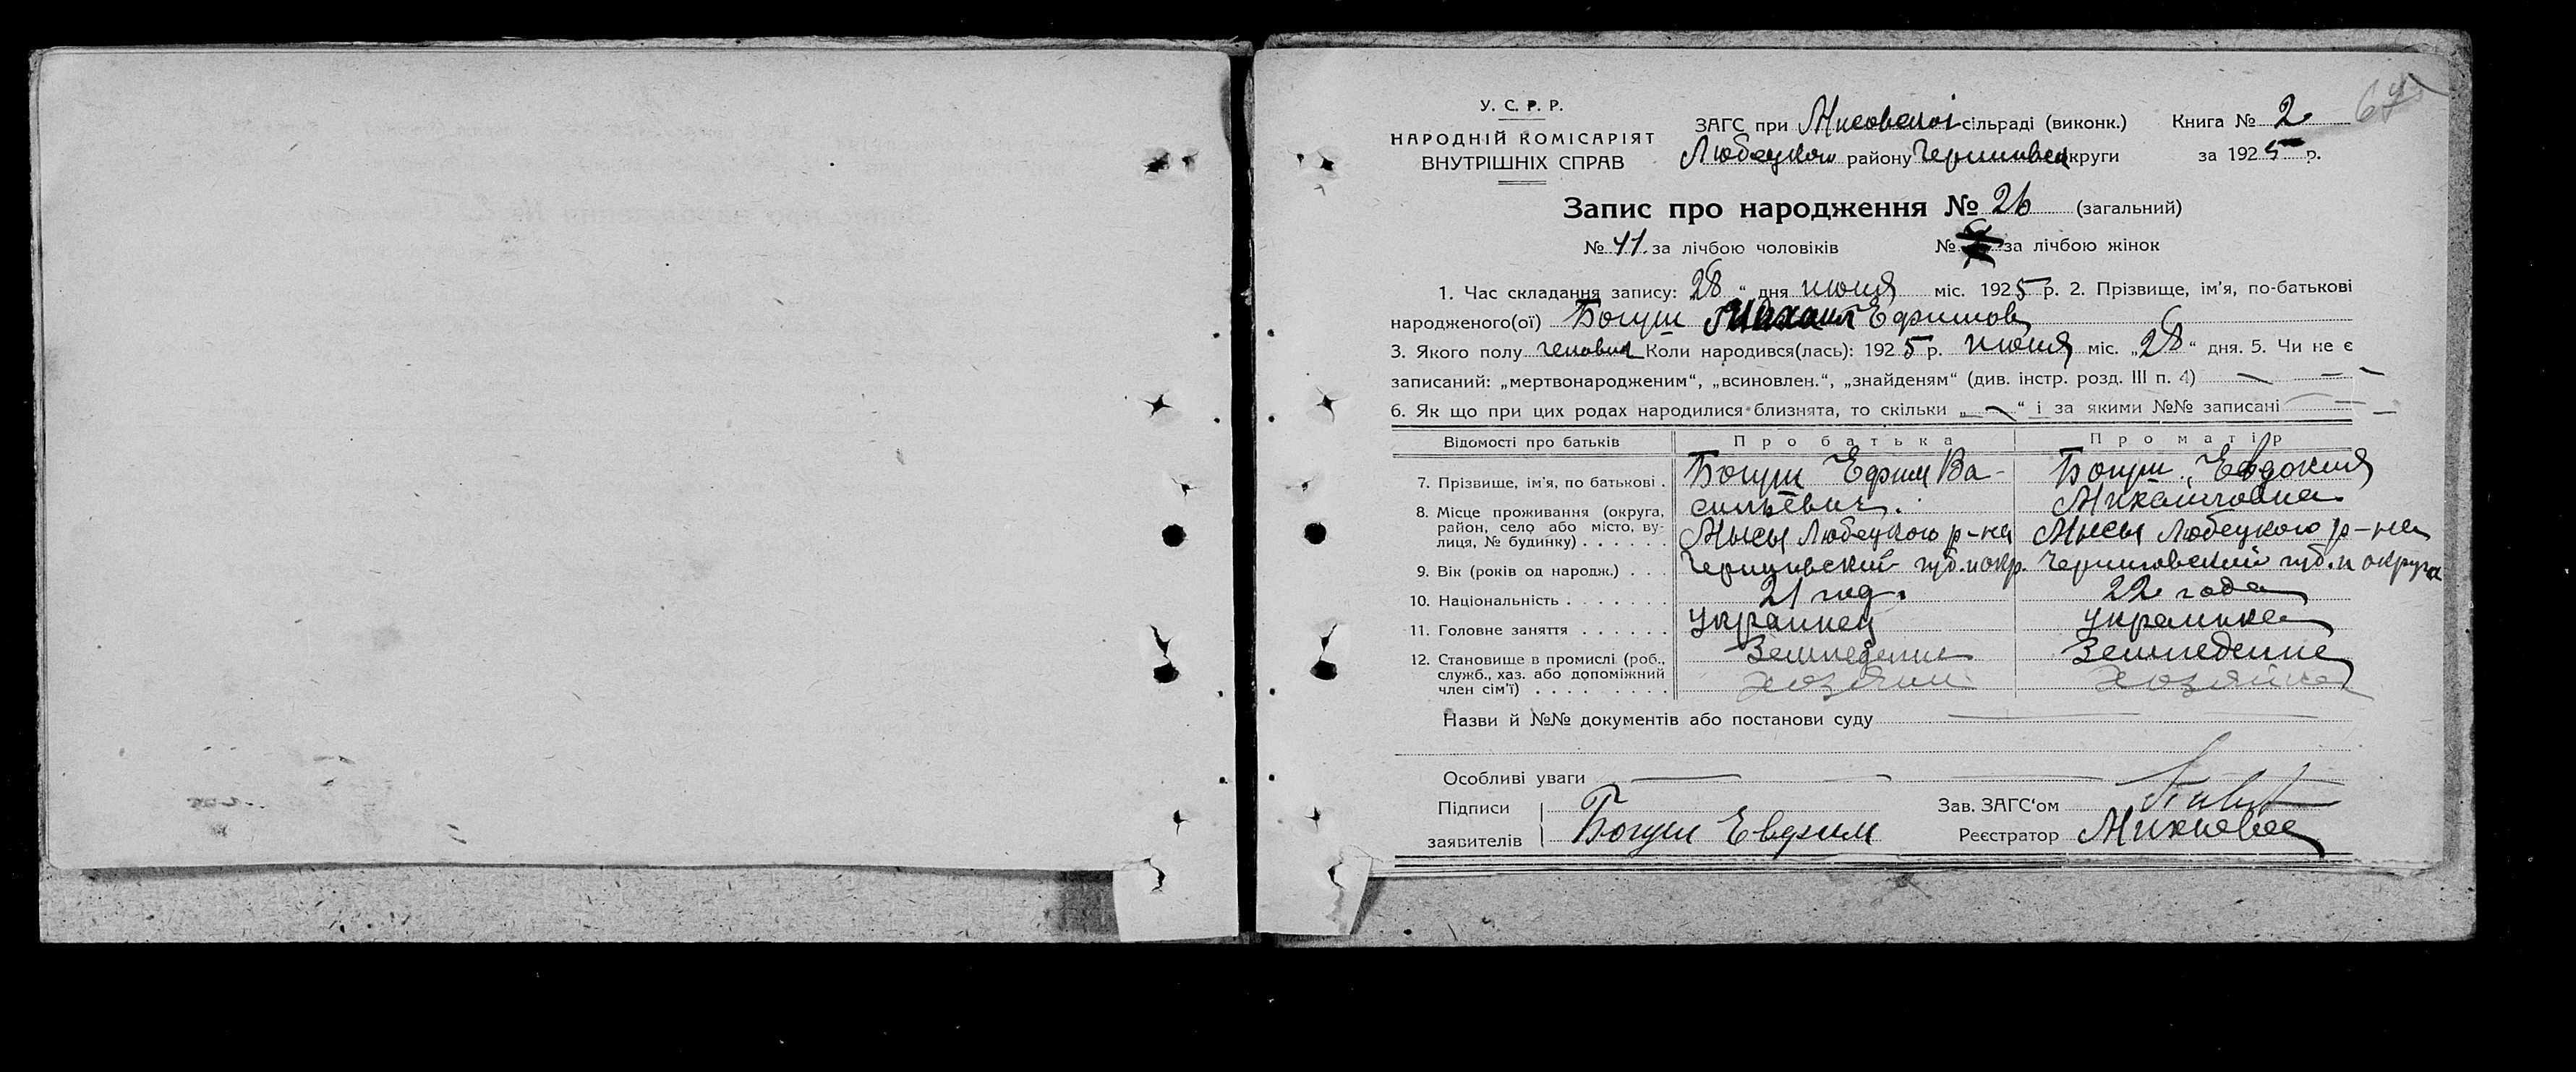 У. С. Р. Р.
НАРОДНІЙ КОМІСАРІЯТ
ВНУТРІШНІХ СПРАВ
ЗАГС при Мисовской сільраді (виконк.) Книга № 2
Любецкого району Черниговск округи за 1925 р.
Запис про народження № 26 (загальний)
№ 11 за лічбою чоловіків № за лічбою жінок
1. Час складання запису: 28 " дня июня міс. 1925 р. 2. Прізвище, ім'я, по-батькові
народженого(ої) Богуш Михаил Ефимов
3. Якого полу Коли народився(лась): 1925 р. июня міс. „28" дня. 5. Чи не є
записаний: „мертвонародженим", „всиновлен.", „знайденям" (див. інстр. розд. III п. 4)
6. Як що при цих родах народилися близнята, то скільки „ — " і за якими №№ записані
Відомості про батьків Про батька Про матір
7. Прізвище, ім'я, по батькові . Богуш Ефим Ва- Богуш Евдокия
8. Місце проживання (округа, сильевич. Михайловна
район, село або місто, ву-
лиця, № будинку) . . . . . . Мысы Любецкого р-на Мысы Любецкого р-на
9. Вік (років од народж.) . . . Черниговский губ. и окр. Черниговский губ. и округа
10. Національність . . . . . . . 21 год. 22 года
11. Головне заняття . . . . . . Украинец Украинка
12. Становище в промислі (роб., Земледелие Земледелие
служб., хаз. або допоміжний
член сім'ї) . . . . . . . . . Хозяин Хозяйка
Назви й №№ документів або постанови суду
Особливі уваги
Підписи Зав. ЗАГС'ом
заявителів Богуш Евдхим Реєстратор